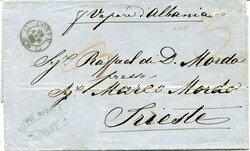 CORFU
p Vapore d'Albania
Sigr Rafael di D. Mordo
presso
Sigr Marco Mordo
Trieste
CORFU